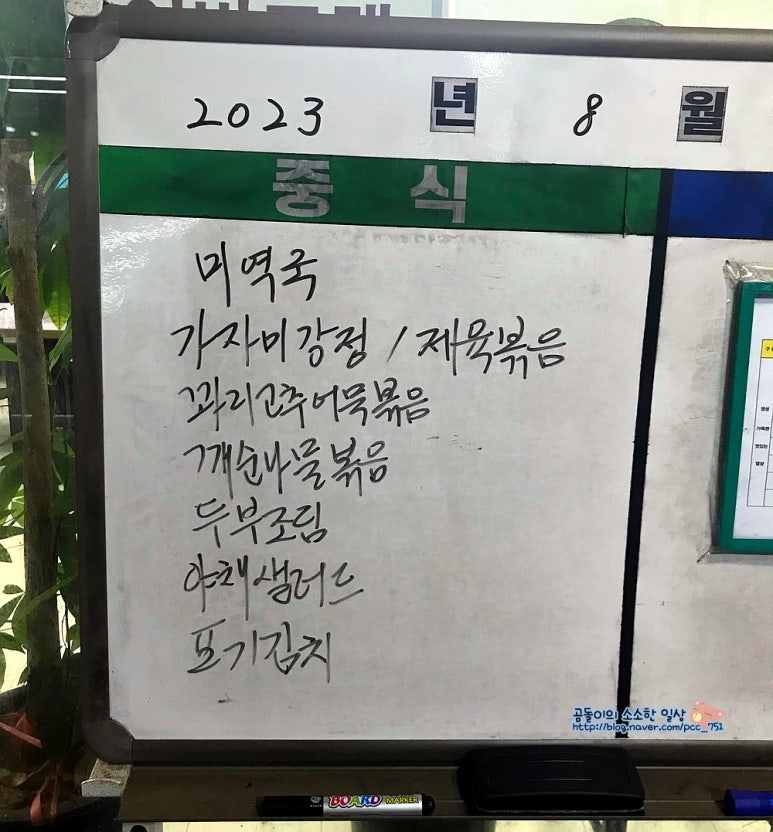 2023 년 8 월
중 식
미역국
가자미강정 / 제육볶음
꽈리고추어묵볶음
깨순나물볶음
두부조림
야채샐러드
포기김치
곰돌이의 소소한 일상
http://blog.naver.com/pcc_751
BOARD MARKER